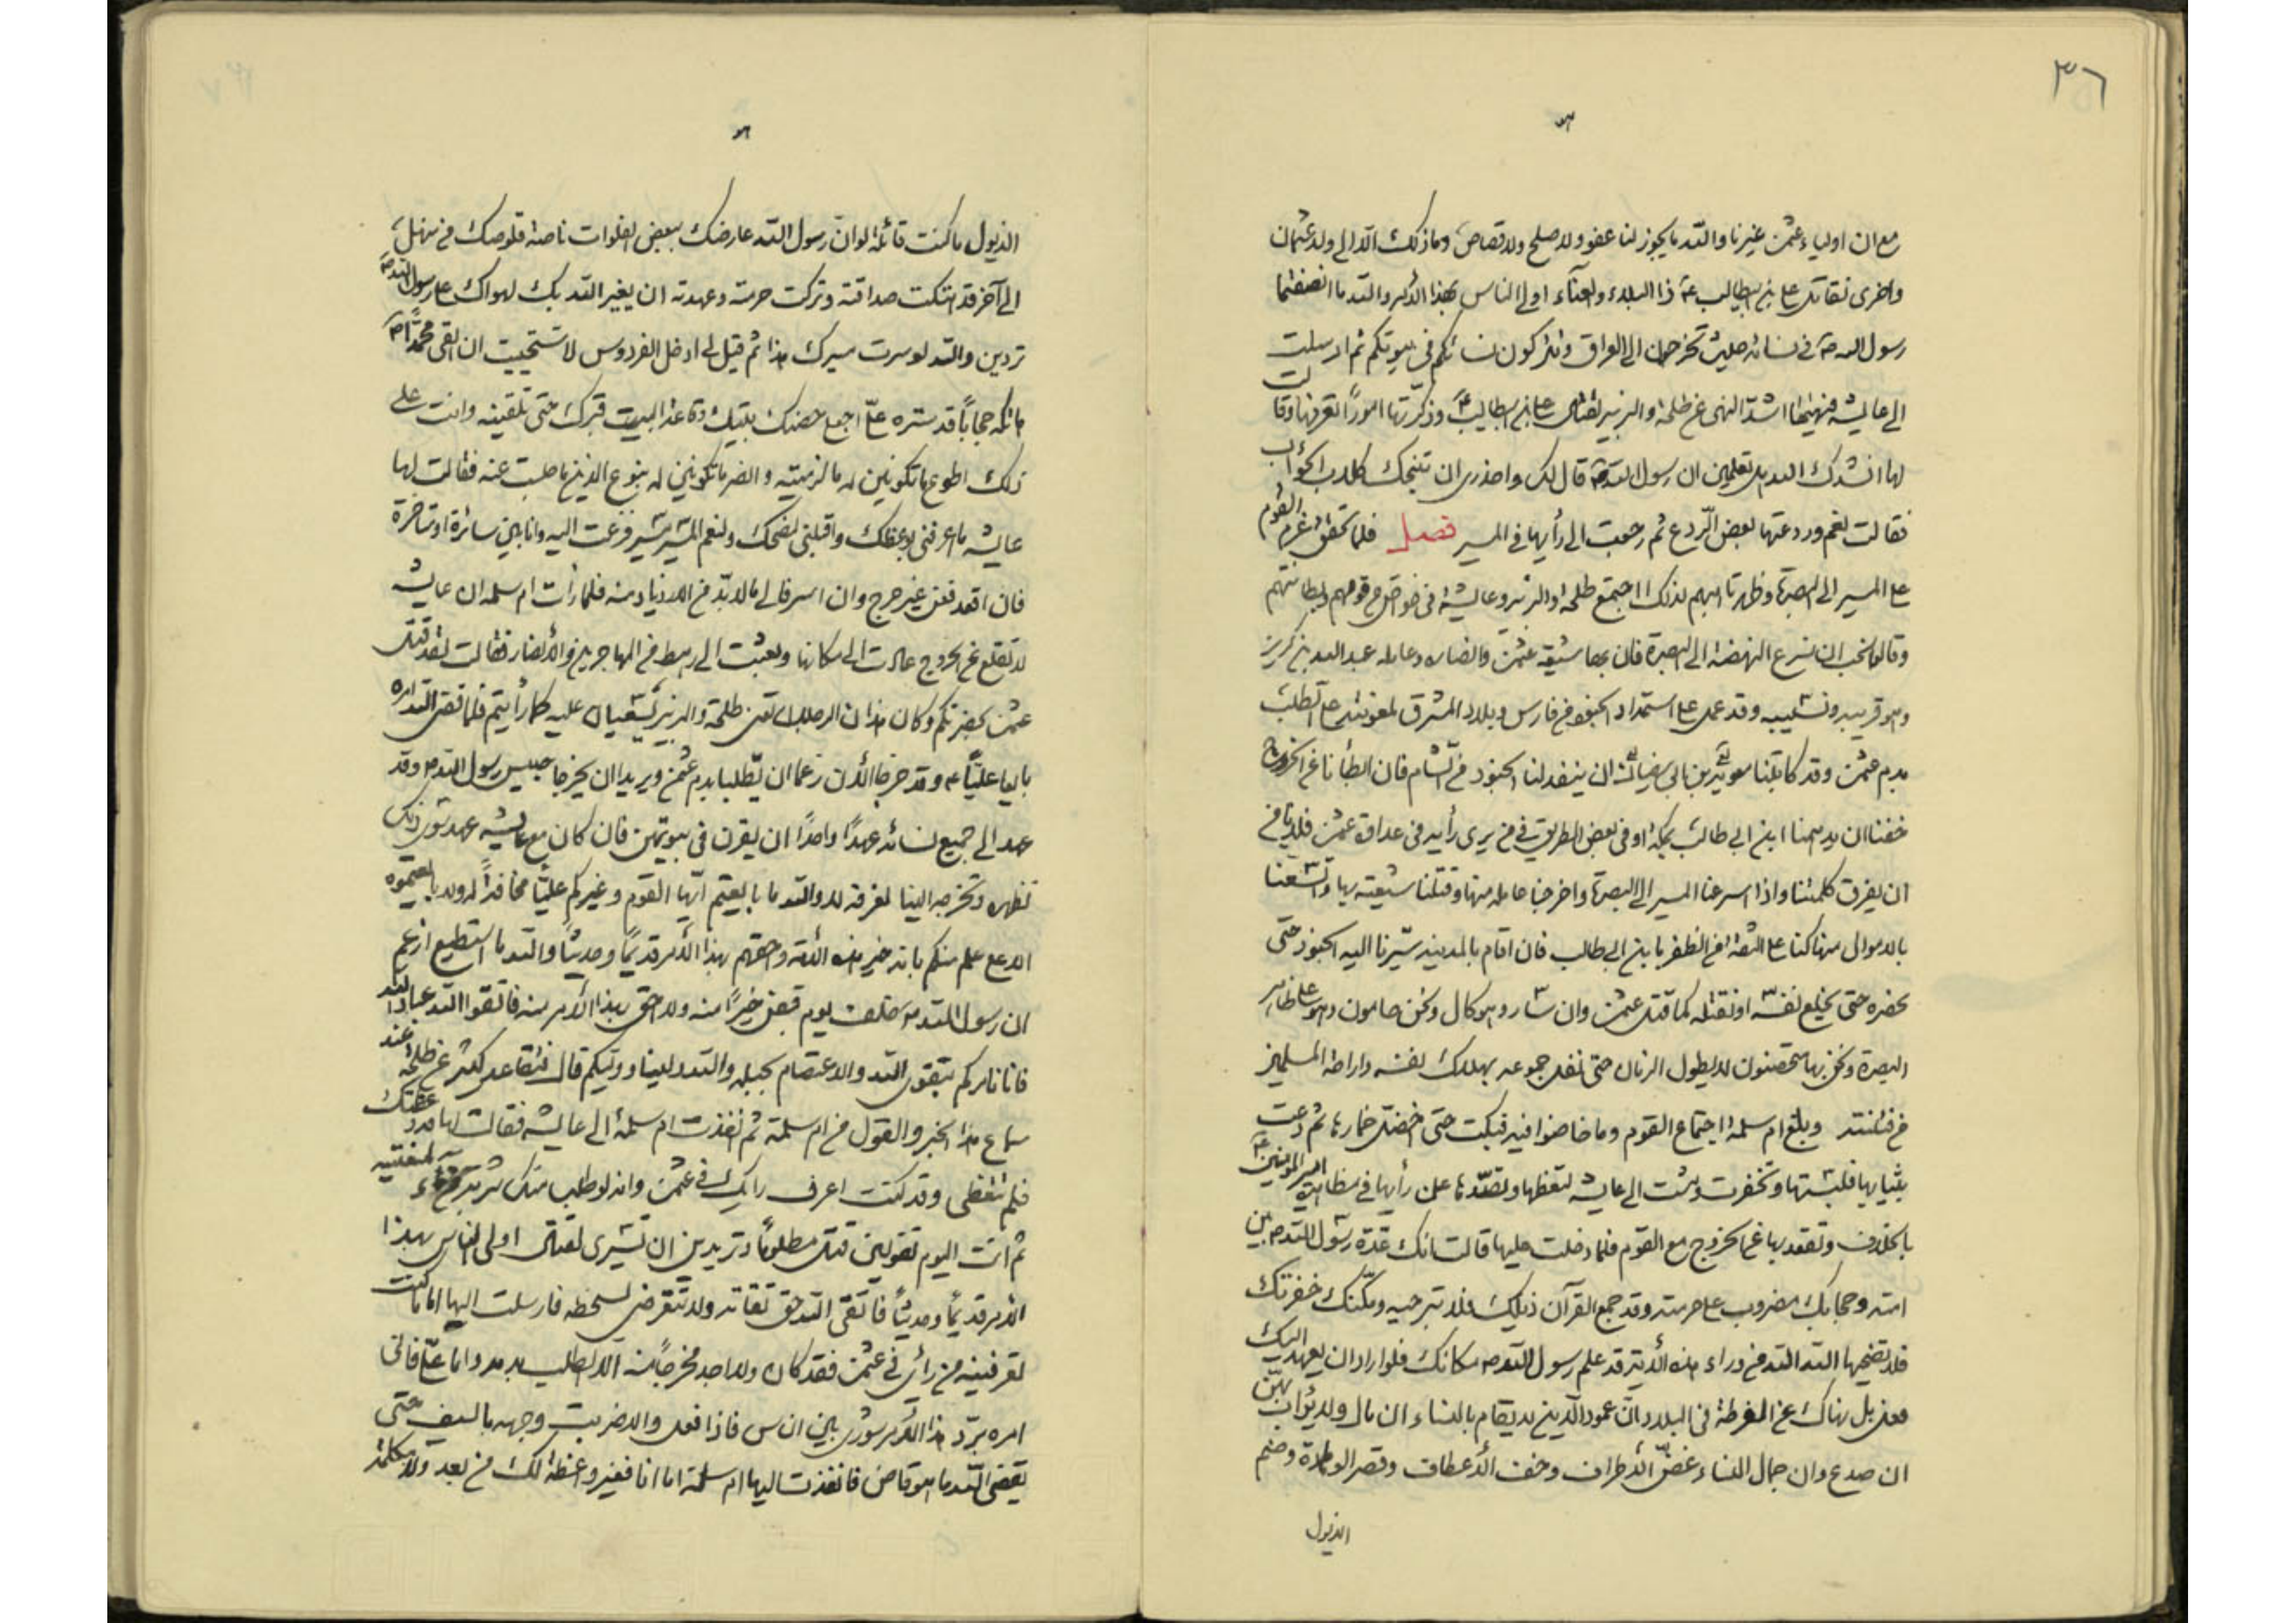 ٣٦
مع ان اولياء عثمن غيرنا والله ما يجوز لنا عفو ولا صلح ولا قصاص وما ذلك الا الى ولد عثمان
واخرى نقاتل على بن ابيطالب ع ذا البلاء والعناء اولى الناس بهذا الامر والله ما انصفتما
رسول الله ص في نسائه حيث تخرجهن الى العراق وتتركون نسائكم في بيوتكم ثم ارسلت
الى عايشه فنهيتها اشد النهى عن طلحة والزبير لقتال على بن ابيطالب ع وذكرتها امورا تعرفها وقالت
لها انشدك الله هل تعلمين ان رسول الله ص قال لك واحذرى ان تنبحك كلاب الحوأب
فقالت نعم وردعتها بعض الردع ثم رجعت الى رأيها في المسير فصل فلما تحقق عزم القوم
على المسير الى البصرة وظهر تاهبهم لذلك اجتمع طلحة والزبير وعايشة في خواص قومهم وبطانتهم
وقالوا نحب ان نسرع النهضة الى البصرة فان بها شيعة عثمن وانصاره وعامله عبد الله بن كريز
وهو قريبه ونسيبه وقد عمل على استمداد الجنود من فارس وبلاد المشرق لمعونته على الطلب
بدم عثمن وقد كاتبنا معوية بن ابى سفيان ان ينفد لنا الجنود من الشام فان ابطأنا عن الخروج
خفنا ان يدهمنا ابن ابى طالب بمكة او في بعض الطريق في من يرى رأيه في عداوة عثمن فلا نامن
ان يفرق كلمتنا واذا اسرعنا المسير الى البصرة واخرجنا عامله منها وقتلنا شيعته بها واتسعنا
بالاموال منها كنا على الثقة من الظفر بابن ابى طالب فان اقام بالمدينه سيرنا اليه الجنود حتى
نحصره حتى يخلع نفسه او نقتله كما قتل عثمن وان سار وهو كال ونحن حامون وهو على ظاهر
البصرة ونحن بها متحصنون لا يطول الزمان حتى نفل جموعه بهلاك نفسه واراحة المسلمين
من فتنته وبلغ ام سلمة اجتماع القوم وما خاضوا فيه فبكت حتى اخضل خمارها ثم دعت
بثيابها فلبستها وتخفرت ومشت الى عايشه لتعظها وتصدها عن رأيها في مظاهرة امير المؤمنين ع
بالخلاف وتقعد بها عن الخروج مع القوم فلما دخلت عليها قالت انك عدة رسول الله ص بين
امته وحجابك مضروب على حرمته وقد جمع القرآن ذيلك فلا تبرحيه ومكنك خفرتك
فلا تضحيها الله الله من وراء هذه الأية قد علم رسول الله ص مكانك فلو اراد ان يعهد اليك
فعل بل نهاك عن الفرطة في البلاد ان عمود الدين لا يقام بالنساء ان مال ولا يرأب بهن
ان صدع وان جمال النساء غض الاطراف وخف الأعطاف وقصر الوهادة وضم
الذيول
الذيول ما كنت قائلة لو ان رسول الله عارضك ببعض الفلوات ناصة قلوصك من منهل
الى آخر قد هتكت صداقته وتركت حرمته وعهدته ان يغير الله بك لهواك على رسول الله ص
تردين والله لو سرت مسيرك هذا ثم قيل لى ادخل الفردوس لاستحييت ان القى محمدا ص
هاتكه حجابا قد ستره على اجعلى حصنك بيتك وقاعة البيت قبرك حتى تلقينه وانت على
ذلك اطوع ما تكونين له ما لزمتيه وانصر ما تكونين له بنوع الدين ما جلست عنه فقالت لها
عايشه ما اعرفنى بوعظك واقبلنى لنصحك ولنعم المسير مسير فزعت اليه وانا بين سائرة او متأخرة
فان اقعد فعن غير حرج وان اسر فالى ما لا بد من الازدياد منه فلما رأت ام سلمه ان عايشه
لا تقلع عن الخروج عادت الى مكانها وبعثت الى رهط من المهاجرين والأنصار فقالت لقد قتل
عثمن بحضرتكم وكان هذان الرجلان اعنى طلحة والزبير يشنعان عليه كما رأيتم فلما قضى الله امره
بايعا عليا ع وقد خرجا الأن زعما ان يطلبا بدم عثمن ويريدان يخرجا حبيس رسول الله ص وقد
عهد الى جميع نسائه عهدا واحدا ان يقرن في بيوتهن فان كان مع عايشه عهد سوى ذلك
تظهره وتخرجه الينا لنعرفه لا والله ما بايعتم ايها القوم وغيركم عليا مخافة له ولا بايعتموه
الا على علم منكم بانه خير هذه الأمة واحقهم بهذا الأمر قديما وحديثا والله ما استطيع ازعم
ان رسول الله ص خلف يوم قبض خيرا منه ولا احق بهذا الأمر منه فاتقوا الله عباد الله
فانا نامركم بتقوى الله والاعتصام بحبله والله ولينا ووليكم قال فتقاعد كثير عن طلحة عند
سماع هذا الخبر والقول من ام سلمة ثم نفذت ام سلمة الى عايشه فقالت لها قد وعظتك
فلم تتعظى وقد كنت اعرف رايك في عثمن وانه لو طلب منك شربة من ماء لمنعتيه
ثم انت اليوم تقولين قتل مظلوما وتريدين ان تثيرى لقتال اولى الناس بهذا
الأمر قديما وحديثا فاتقى الله حق تقاته ولا تتعرضى لسخطه فارسلت اليها اما ما كنت
تعرفينه من رأى في عثمن فقد كان ولا اجد مخرجا منه الا الطلب بدمه واما على فانى
امره برد هذا الأمر شورى بين الناس فاذا فعل والا ضربت وجهه بالسيف حتى
يقضى الله ما هو قاض فانفذت اليها ام سلمة اما انا فغير واعظة لك من بعد ولا مكلمة